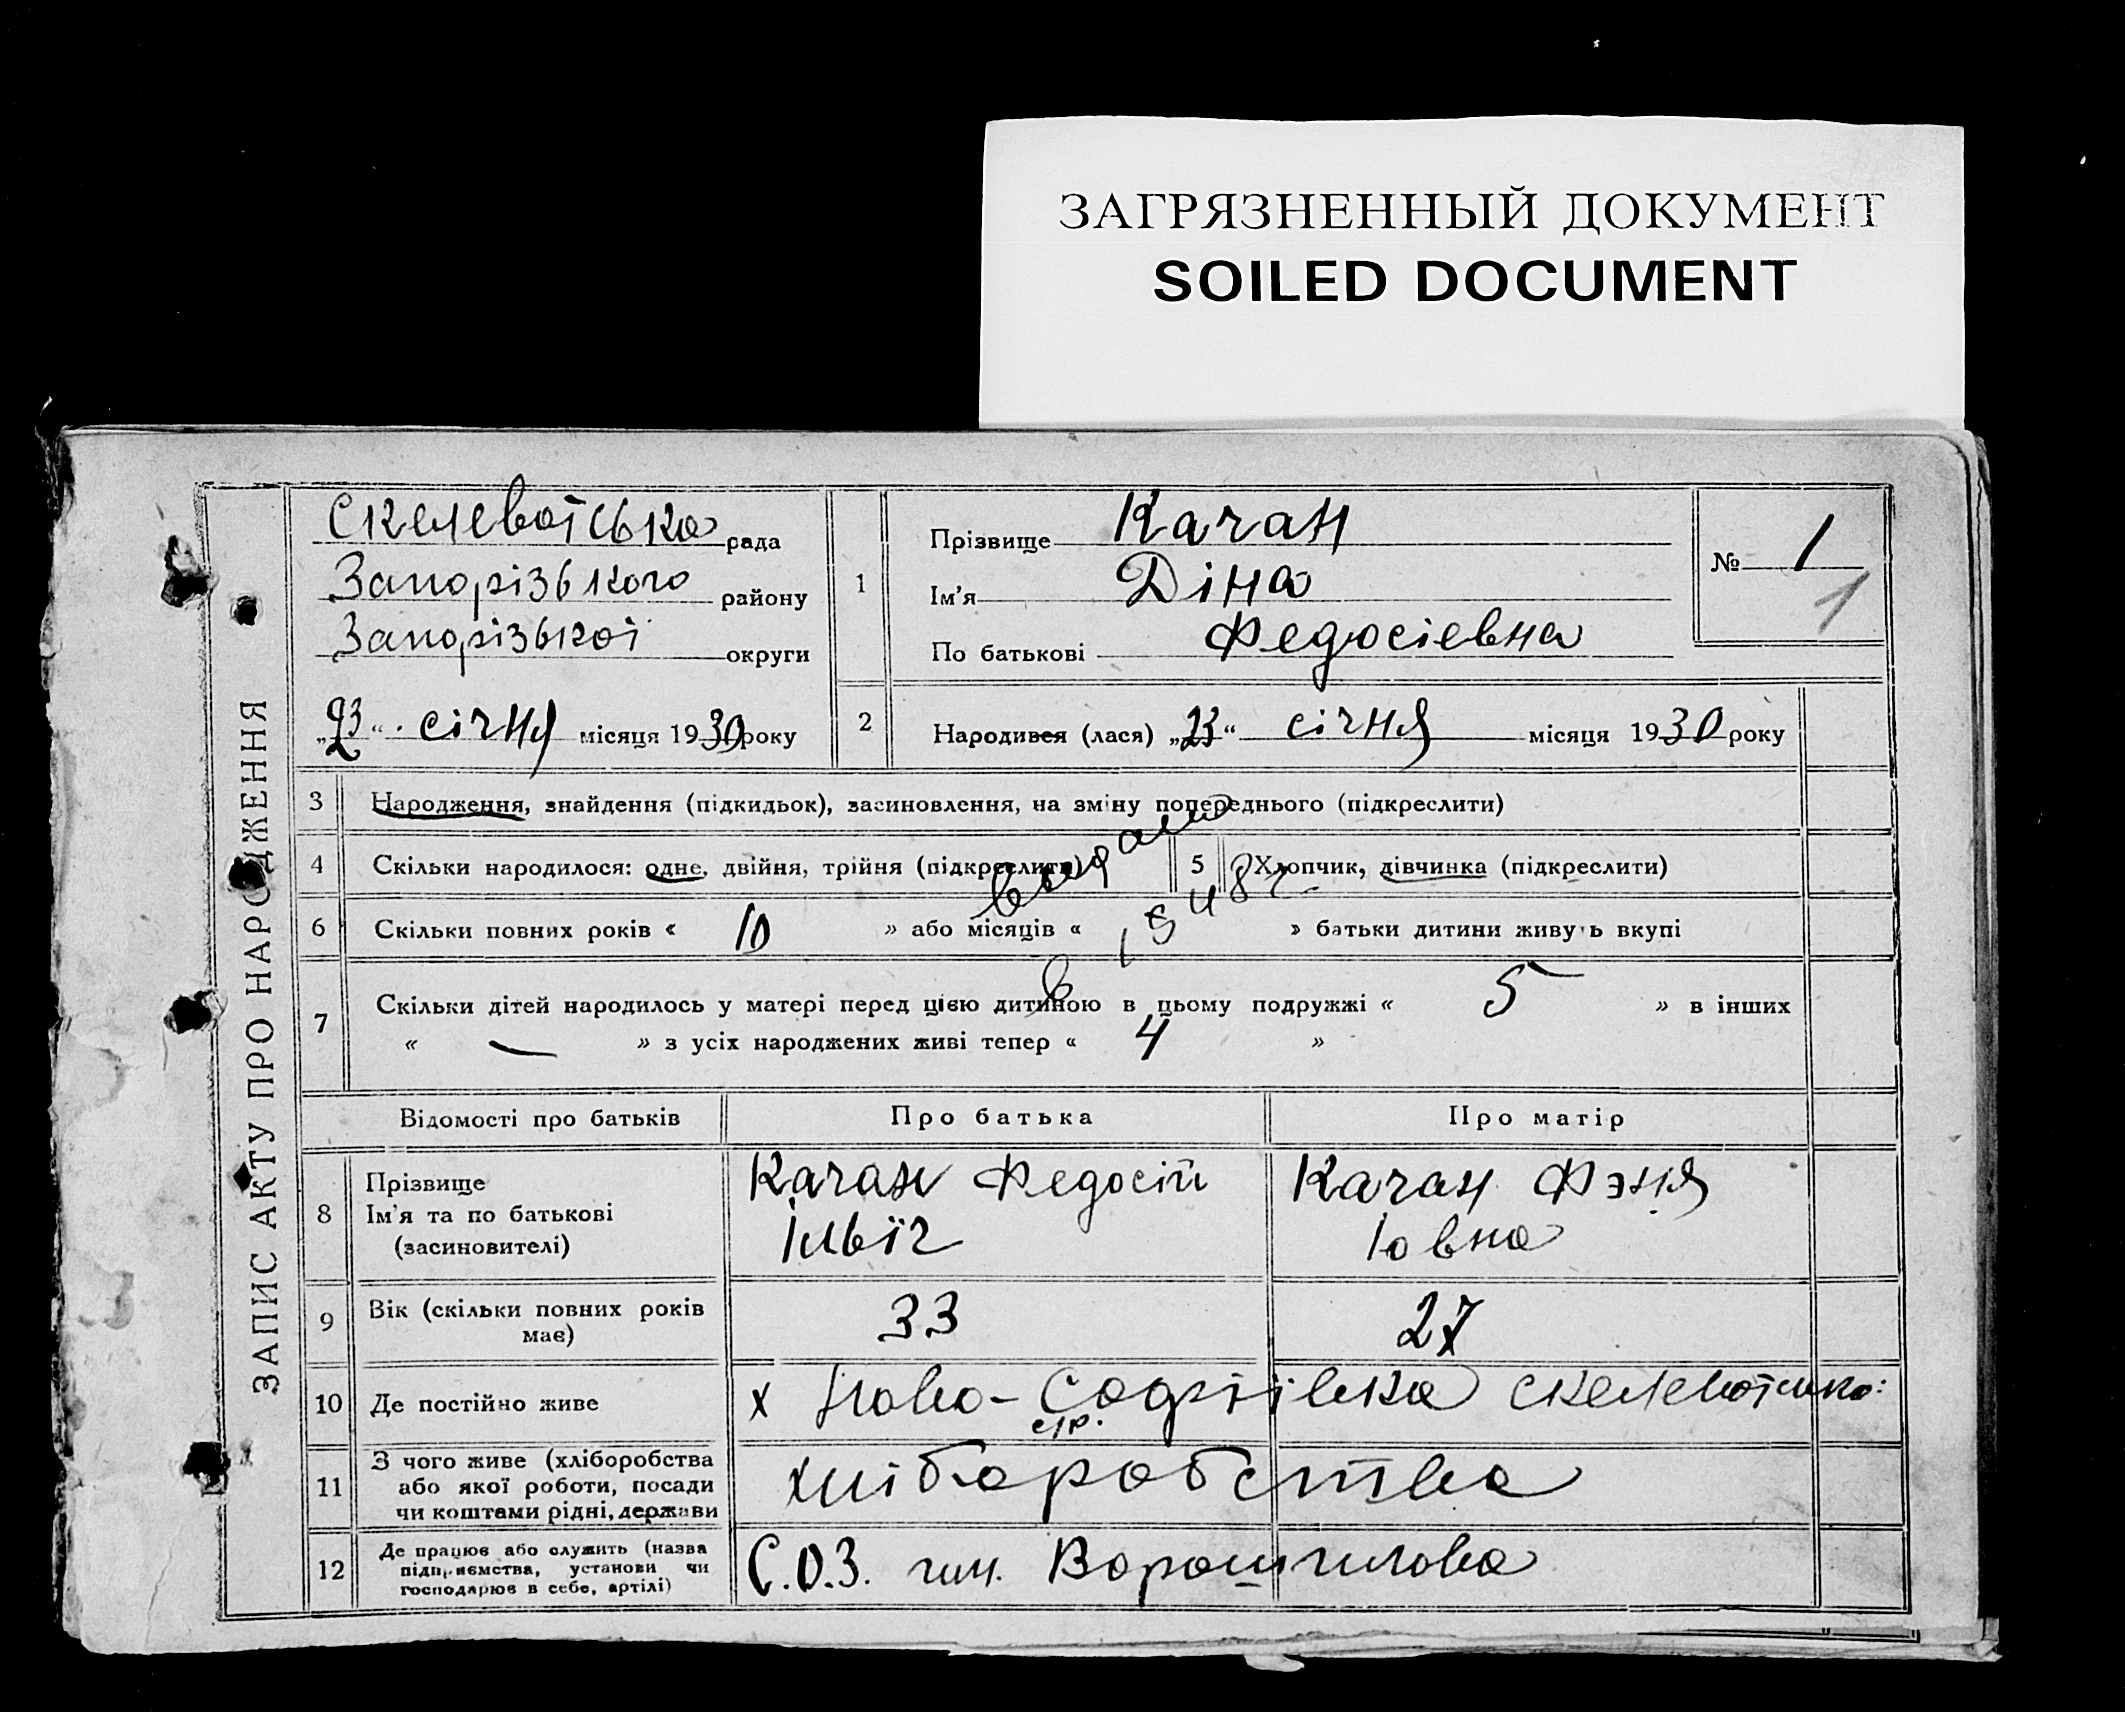 ЗАГРЯЗНЕННЫЙ ДОКУМЕНТ
SOILED DOCUMENT
ЗАПИС АКТУ ПРО НАРОДЖЕННЯ
Скелеватська рада
Запорізького району
Запорізької округи
„23“ січня місяця 1930 року
1
Прізвище Качан
Ім'я Діна
По батькові Федосіевна
№ 1
1
2
Народився (лася) „23“ січня місяця 1930 року
3 Народження, знайдення (підкидьок), засиновлення, на зміну попереднього (підкреслити)
4 Скільки народилося: одне, двійня, трійня (підкреслити)
5 Хлопчик, дівчинка (підкреслити)
6 Скільки повних років « 10 » або місяців « » батьки дитини живуть вкупі
7 Скільки дітей народилось у матері перед цією дитиною в цьому подружжі « 5 » в інших
« — » з усіх народжених живі тепер « 4 »
Відомості про батьків Про батька Про матір
8 Прізвище
Ім'я та по батькові
(засиновителі)
Качан Федосій
Ільїч
Качан Фэня
Іовна
9 Вік (скільки повних років
має)
33 27
10 Де постійно живе х Ново-Софіївка
с/р.
11 З чого живе (хліборобства
або якої роботи, посади
чи коштами рідні, держави
хліборобства
12 Де працює або служить (назва
підприємства, установи чи
господарює в себе, артілі)
С.О.З. Ворошилова